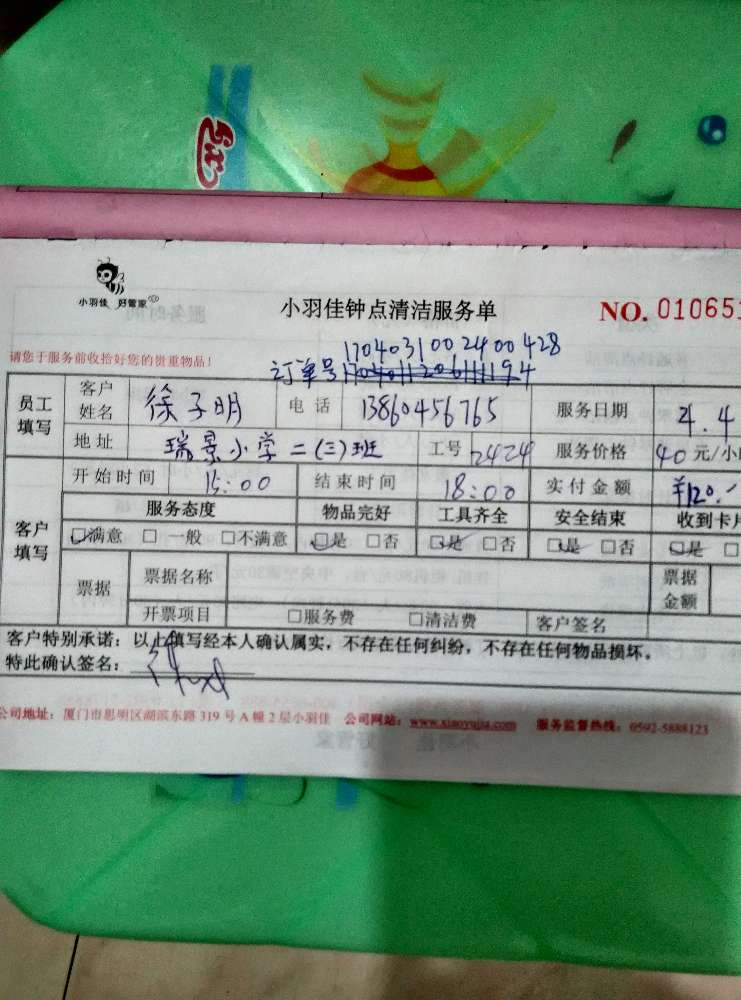 小羽佳 好管家
小羽佳钟点清洁服务单
NO. 010651
请您于服务前收拾好您的贵重物品!
1704031002400428
订单号
员工填写 客户姓名 徐子明 电话 13860456765 服务日期 4.4
地址 瑞景小学二(三)班 工号 2424 服务价格 40元/小
客户填写 开始时间 15:00 结束时间 18:00 实付金额 ¥120.-
服务态度 物品完好 工具齐全 安全结束 收到卡片
☑满意 □一般 □不满意 ☑是 □否 ☑是 □否 ☑是 □否 ☑是 □
票据 票据名称 票据金额
开票项目 □服务费 □清洁费 客户签名
客户特别承诺:以上填写经本人确认属实,不存在任何纠纷,不存在任何物品损坏。
特此确认签名:
公司地址:厦门市思明区湖滨东路319号A幢2层小羽佳 公司网站:www.xiaoyujia.com 服务监督热线:0592-5888123